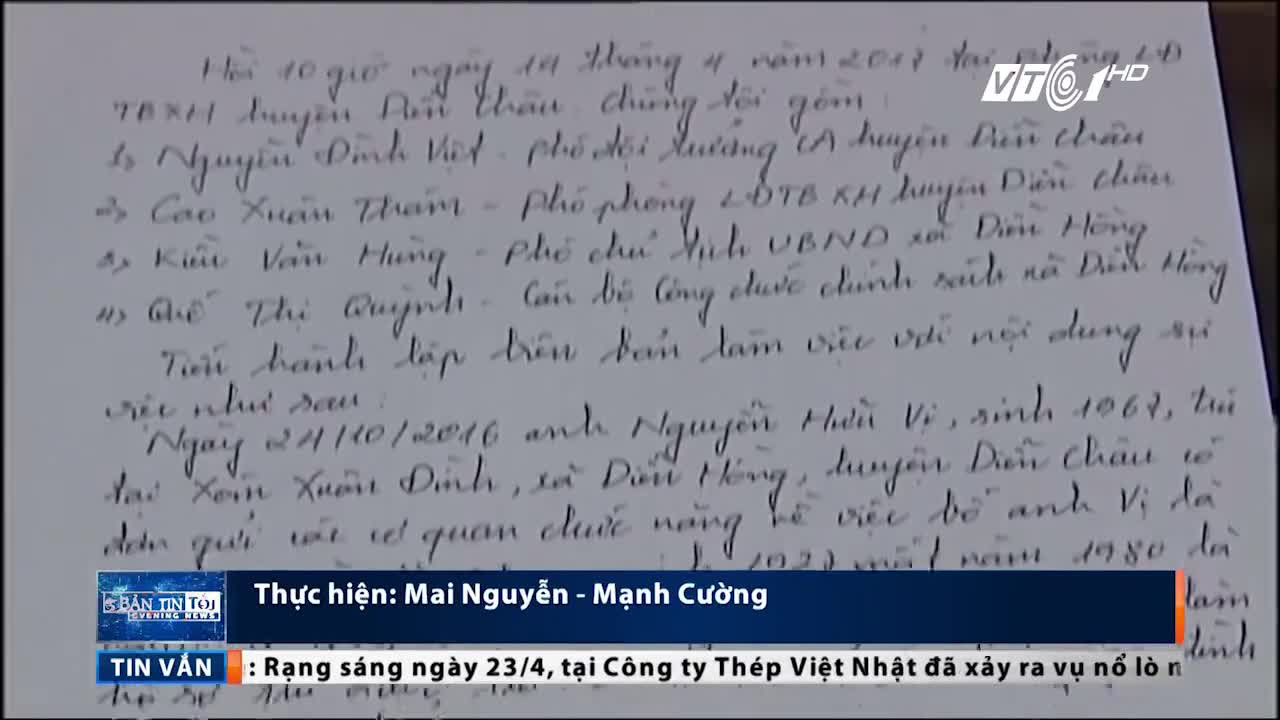 Hồi 10 giờ ngày 14 tháng 4 năm 2017 tại phòng LĐ
VTC1 HD
TBXH huyện Diễn Châu. Chúng tôi gồm:
1) Nguyễn Đình Việt - Phó đội trưởng CA huyện Diễn Châu
2) Cao Xuân Thắm - Phó phòng LĐTBXH huyện Diễn Châu
3) Kiều Văn Hùng - Phó chủ tịch UBND xã Diễn Hồng
4) Quế Thị Quỳnh - Cán bộ Công chức chính sách xã Diễn Hồng
Tiến hành lập biên bản làm việc với nội dung sự
việc như sau:
Ngày 24/10/2016 anh Nguyễn Hữu Vị, sinh 1967, trú
tại xóm Xuân Đình, xã Diễn Hồng, huyện Diễn Châu có
đơn gửi các cơ quan chức năng về việc bố anh Vị là
1927 mất năm 1980 là
làm
đình
BẢN TIN TỐI
EVENING NEWS
Thực hiện: Mai Nguyễn - Mạnh Cường
TIN VẮN
: Rạng sáng ngày 23/4, tại Công ty Thép Việt Nhật đã xảy ra vụ nổ lò
hồ sơ